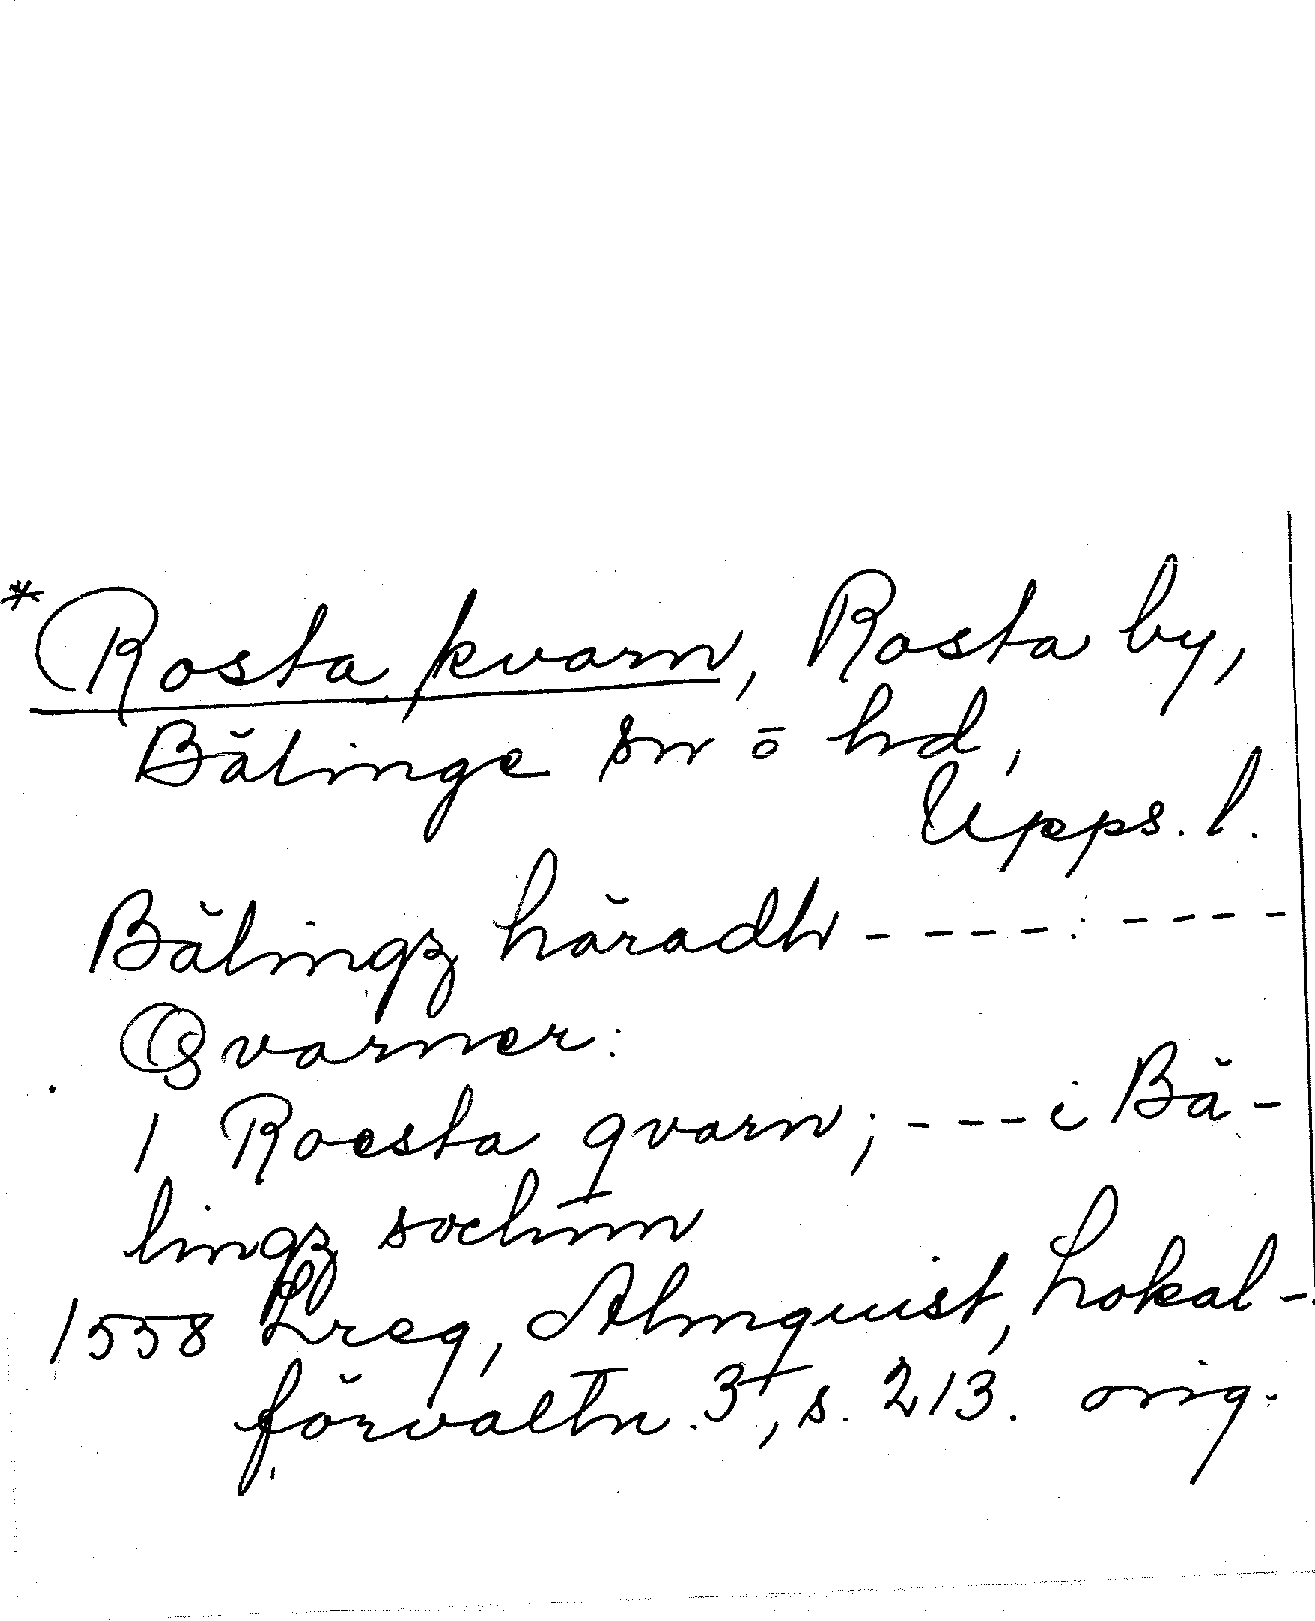 *Rosta kvarn, Rosta by,
Bälinge sn o hd,
Upps. l.
Bälingz häradh - - - - : - - - -
Qvarner:
1 Roesta qvarn; - - - i Bä-
lingz sochnn
1558 Lreg, Almquist, Lokal-
förvaltn. 3, s. 213. orig.